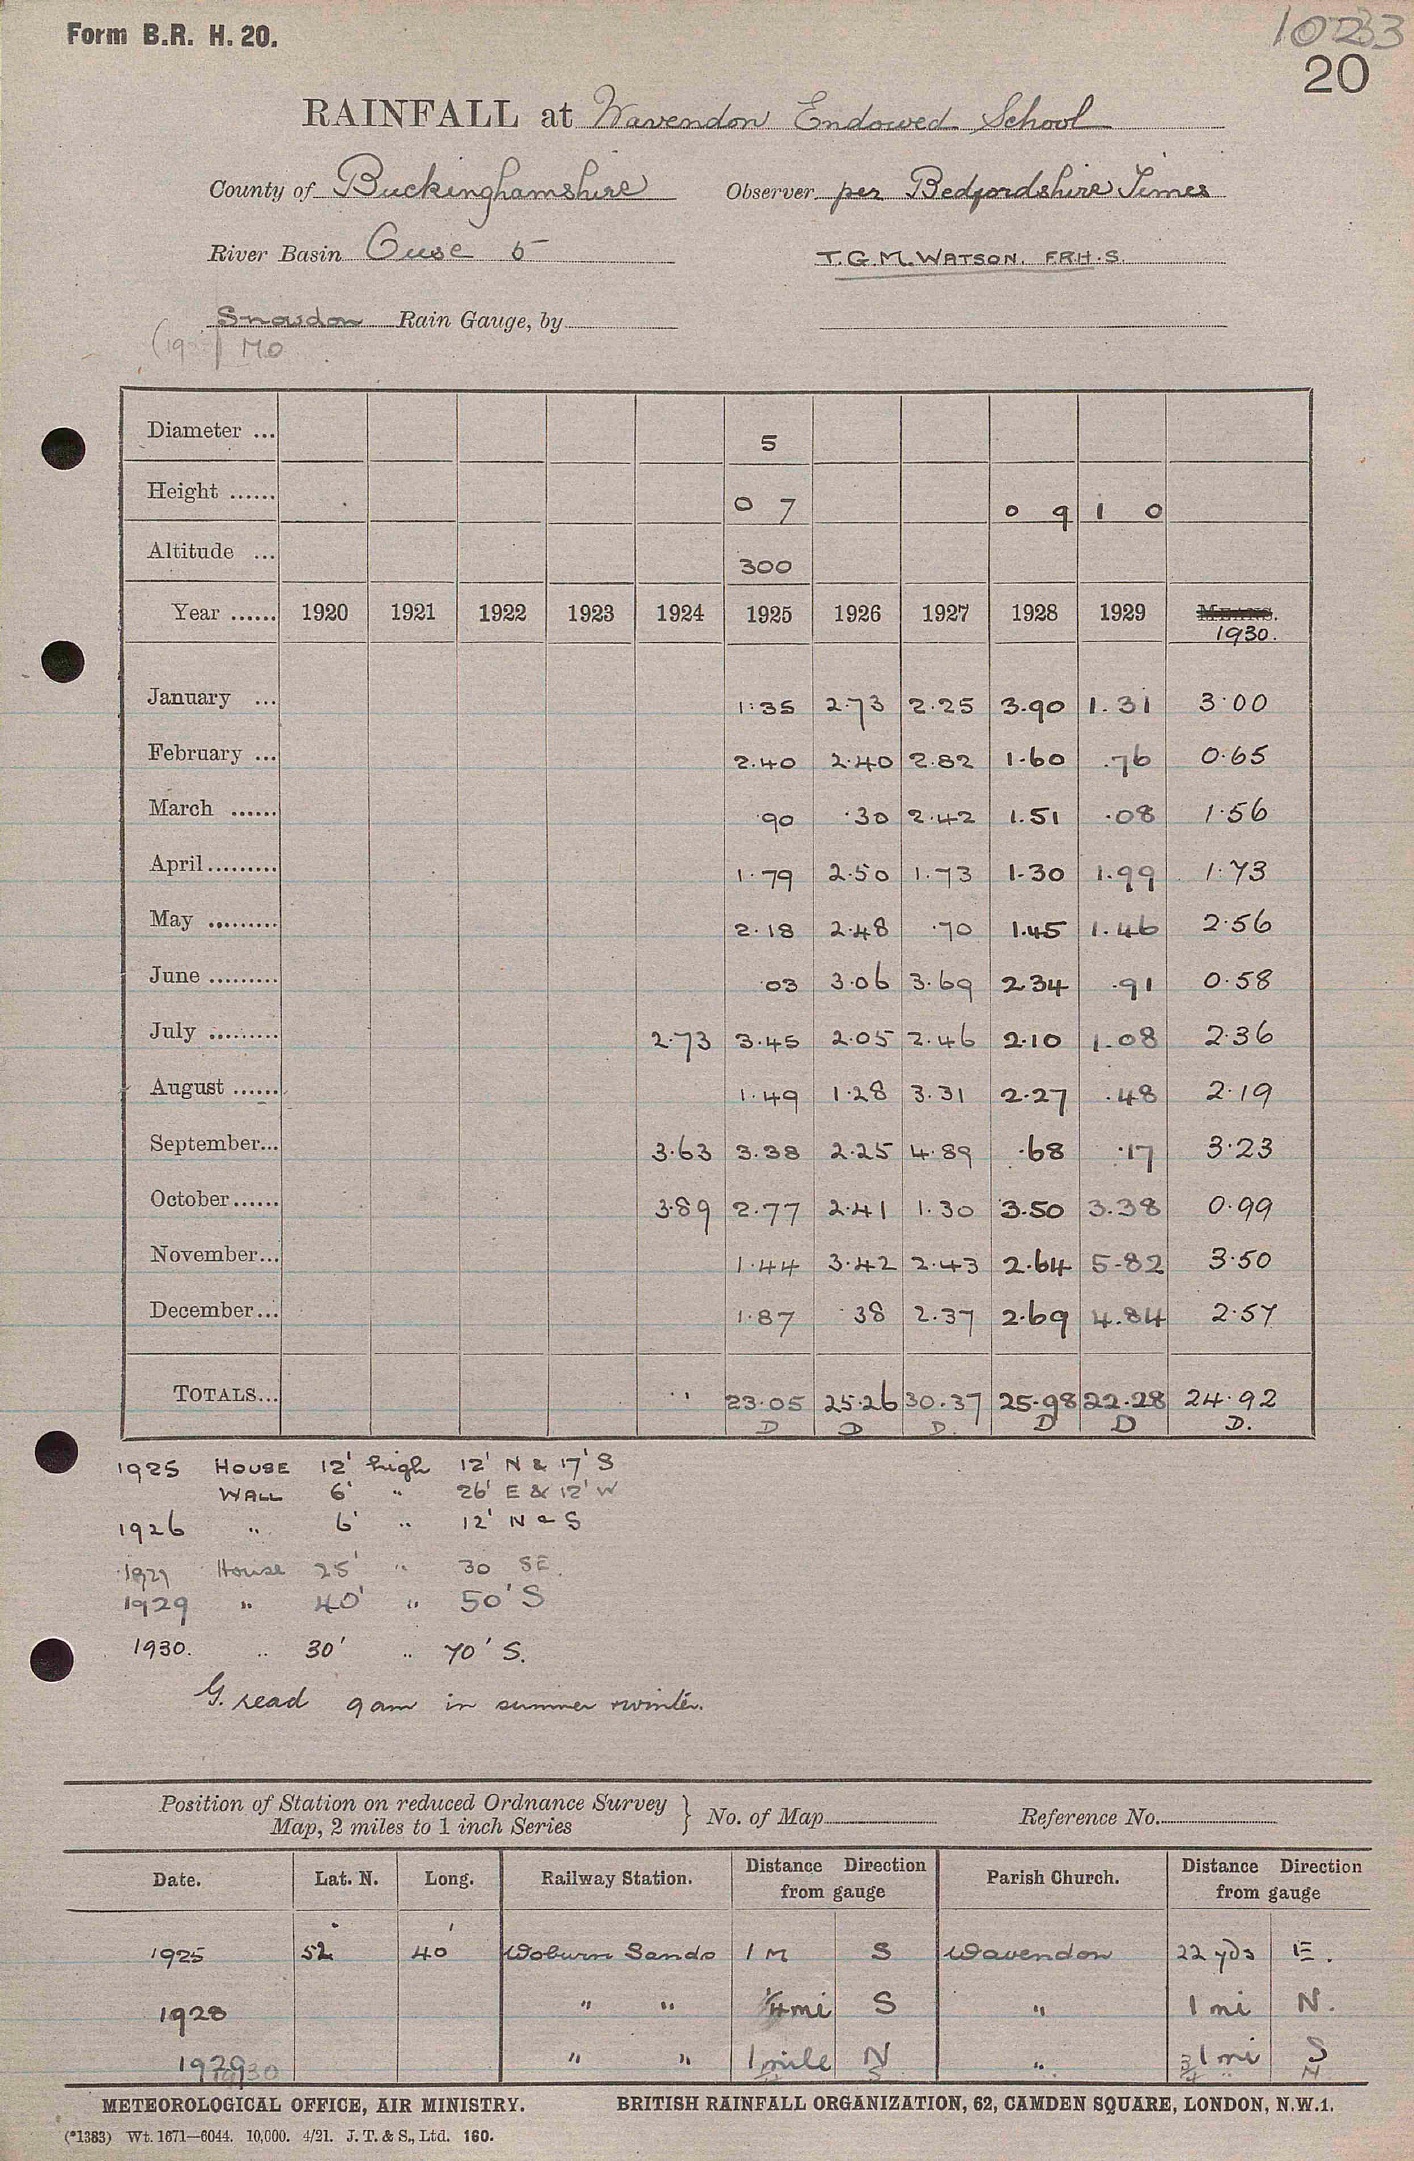 Form B.R. H. 20.
20
RAINFALL at Wavendon Endowed School
County of Buckinghamshire Observer per Bedfordshire Times
River Basin Ouse 5 T.G.M. WATSON. F.R.H.S.
Snowdon Rain Gauge, by
MO
Diameter ... 5
Height ...... 0 7 0 9 1 0
Altitude ... 300
Year ...... 1920 1921 1922 1923 1924 1925 1926 1927 1928 1929 MEANS.
1930.
January ... 1.35 2.73 2.25 3.90 1.31 3.00
February ... 2.40 2.40 2.82 1.60 .76 0.65
March ...... .90 .30 2.42 1.51 .08 1.56
April ......... 1.79 2.50 1.73 1.30 1.99 1.73
May ......... 2.18 2.48 .70 1.45 1.46 2.56
June ......... .03 3.06 3.69 2.34 .91 0.58
July ......... 2.73 3.45 2.05 2.46 2.10 1.08 2.36
August ...... 1.49 1.28 3.31 2.27 .48 2.19
September... 3.63 3.38 2.25 4.89 .68 .17 3.23
October ...... 3.89 2.77 2.41 1.30 3.50 3.38 0.99
November... 1.44 3.42 2.43 2.64 5.82 3.50
December... 1.87 .38 2.37 2.69 4.84 2.57
TOTALS... 23.05 25.26 30.37 25.98 22.28 24.92
D D D. D D D.
1925 HOUSE 12' high 12' N & 17' S
WALL 6' " 26' E & 12' W
1926 " 6' " 12' N & S
1927 House 25' " 30 SE.
1929 " 40' " 50' S
1930. " 30' " 70' S.
G. read 9am in summer & winter.
Position of Station on reduced Ordnance Survey
Map, 2 miles to 1 inch Series } No. of Map Reference No.
Date. Lat. N. Long. Railway Station. Distance Direction from gauge Parish Church. Distance Direction from gauge
1925 52° 40' Woburn Sands 1 M S Wavendon 22 yds E.
1928 " " 1/4 mi S " 1 mi N.
1929 " " 1 mile N " 1 mi S
1930 S 3/4 " N
METEOROLOGICAL OFFICE, AIR MINISTRY. BRITISH RAINFALL ORGANIZATION, 62, CAMDEN SQUARE, LONDON, N.W.1.
(*1383) Wt. 1671—6044. 10,000. 4/21. J. T. & S., Ltd. 160.